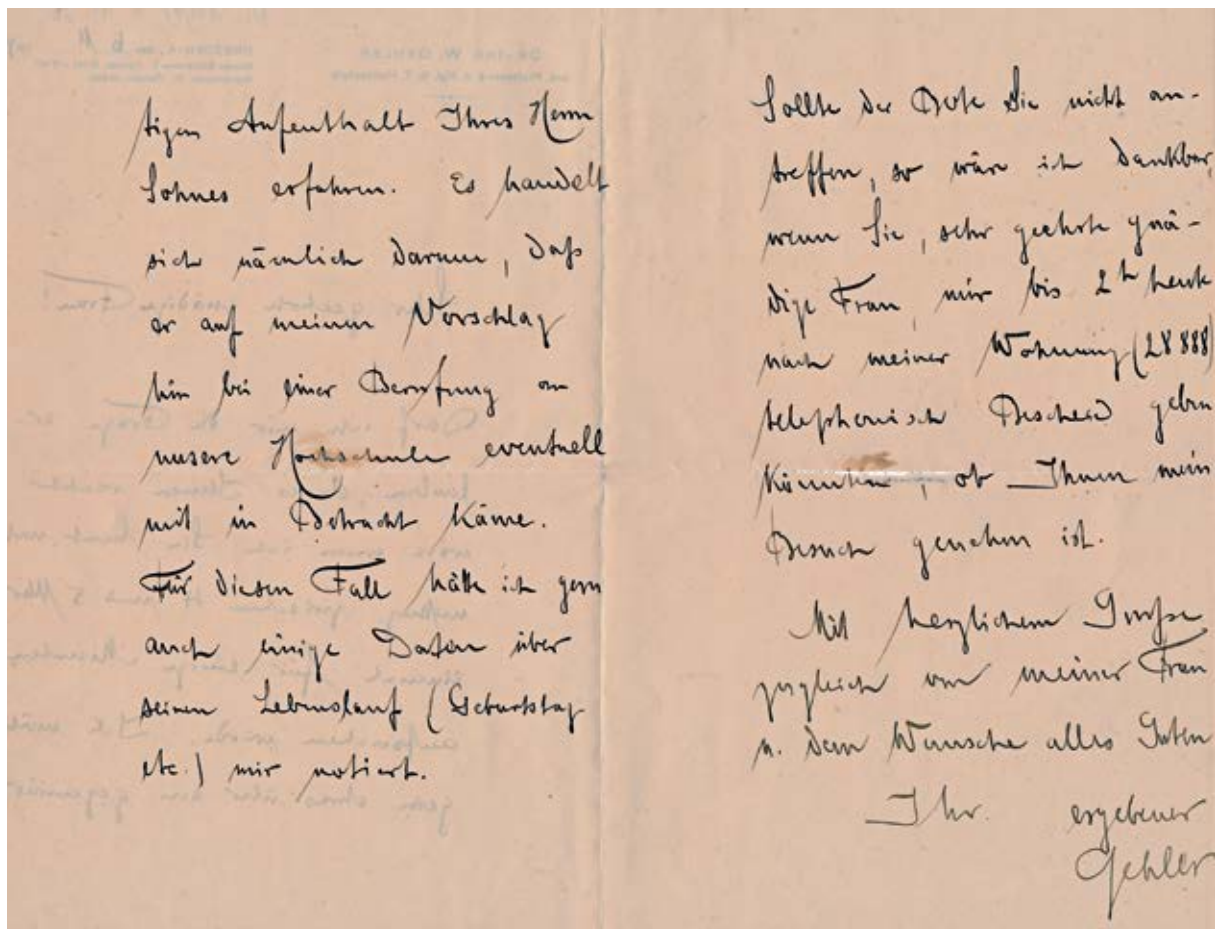 tigen Aufenthalt Ihres Herrn
Sohnes erfahren. Es handelt
sich nämlich darum, daß
er auf meinen Vorschlag
hin bei einer Berufung an
unsere Hochschule eventuell
mit in Betracht käme.
Für diesen Fall hätte ich gern
auch einige Daten über
seinen Lebenslauf (Geburtstag
etc.) mir notiert.
Sollte der Bote Sie nicht an-
treffen, so wäre ich dankbar,
wenn Sie, sehr geehrte gnä-
dige Frau, mir bis 2h heute
nach meiner Wohnung (28888)
telephonisch Bescheid geben
könnten, ob Ihnen mein
Besuch genehm ist.
Mit herzlichem Gruße
zugleich von meiner Frau
u. dem Wunsche alles Guten
Ihr ergebener
Gehler